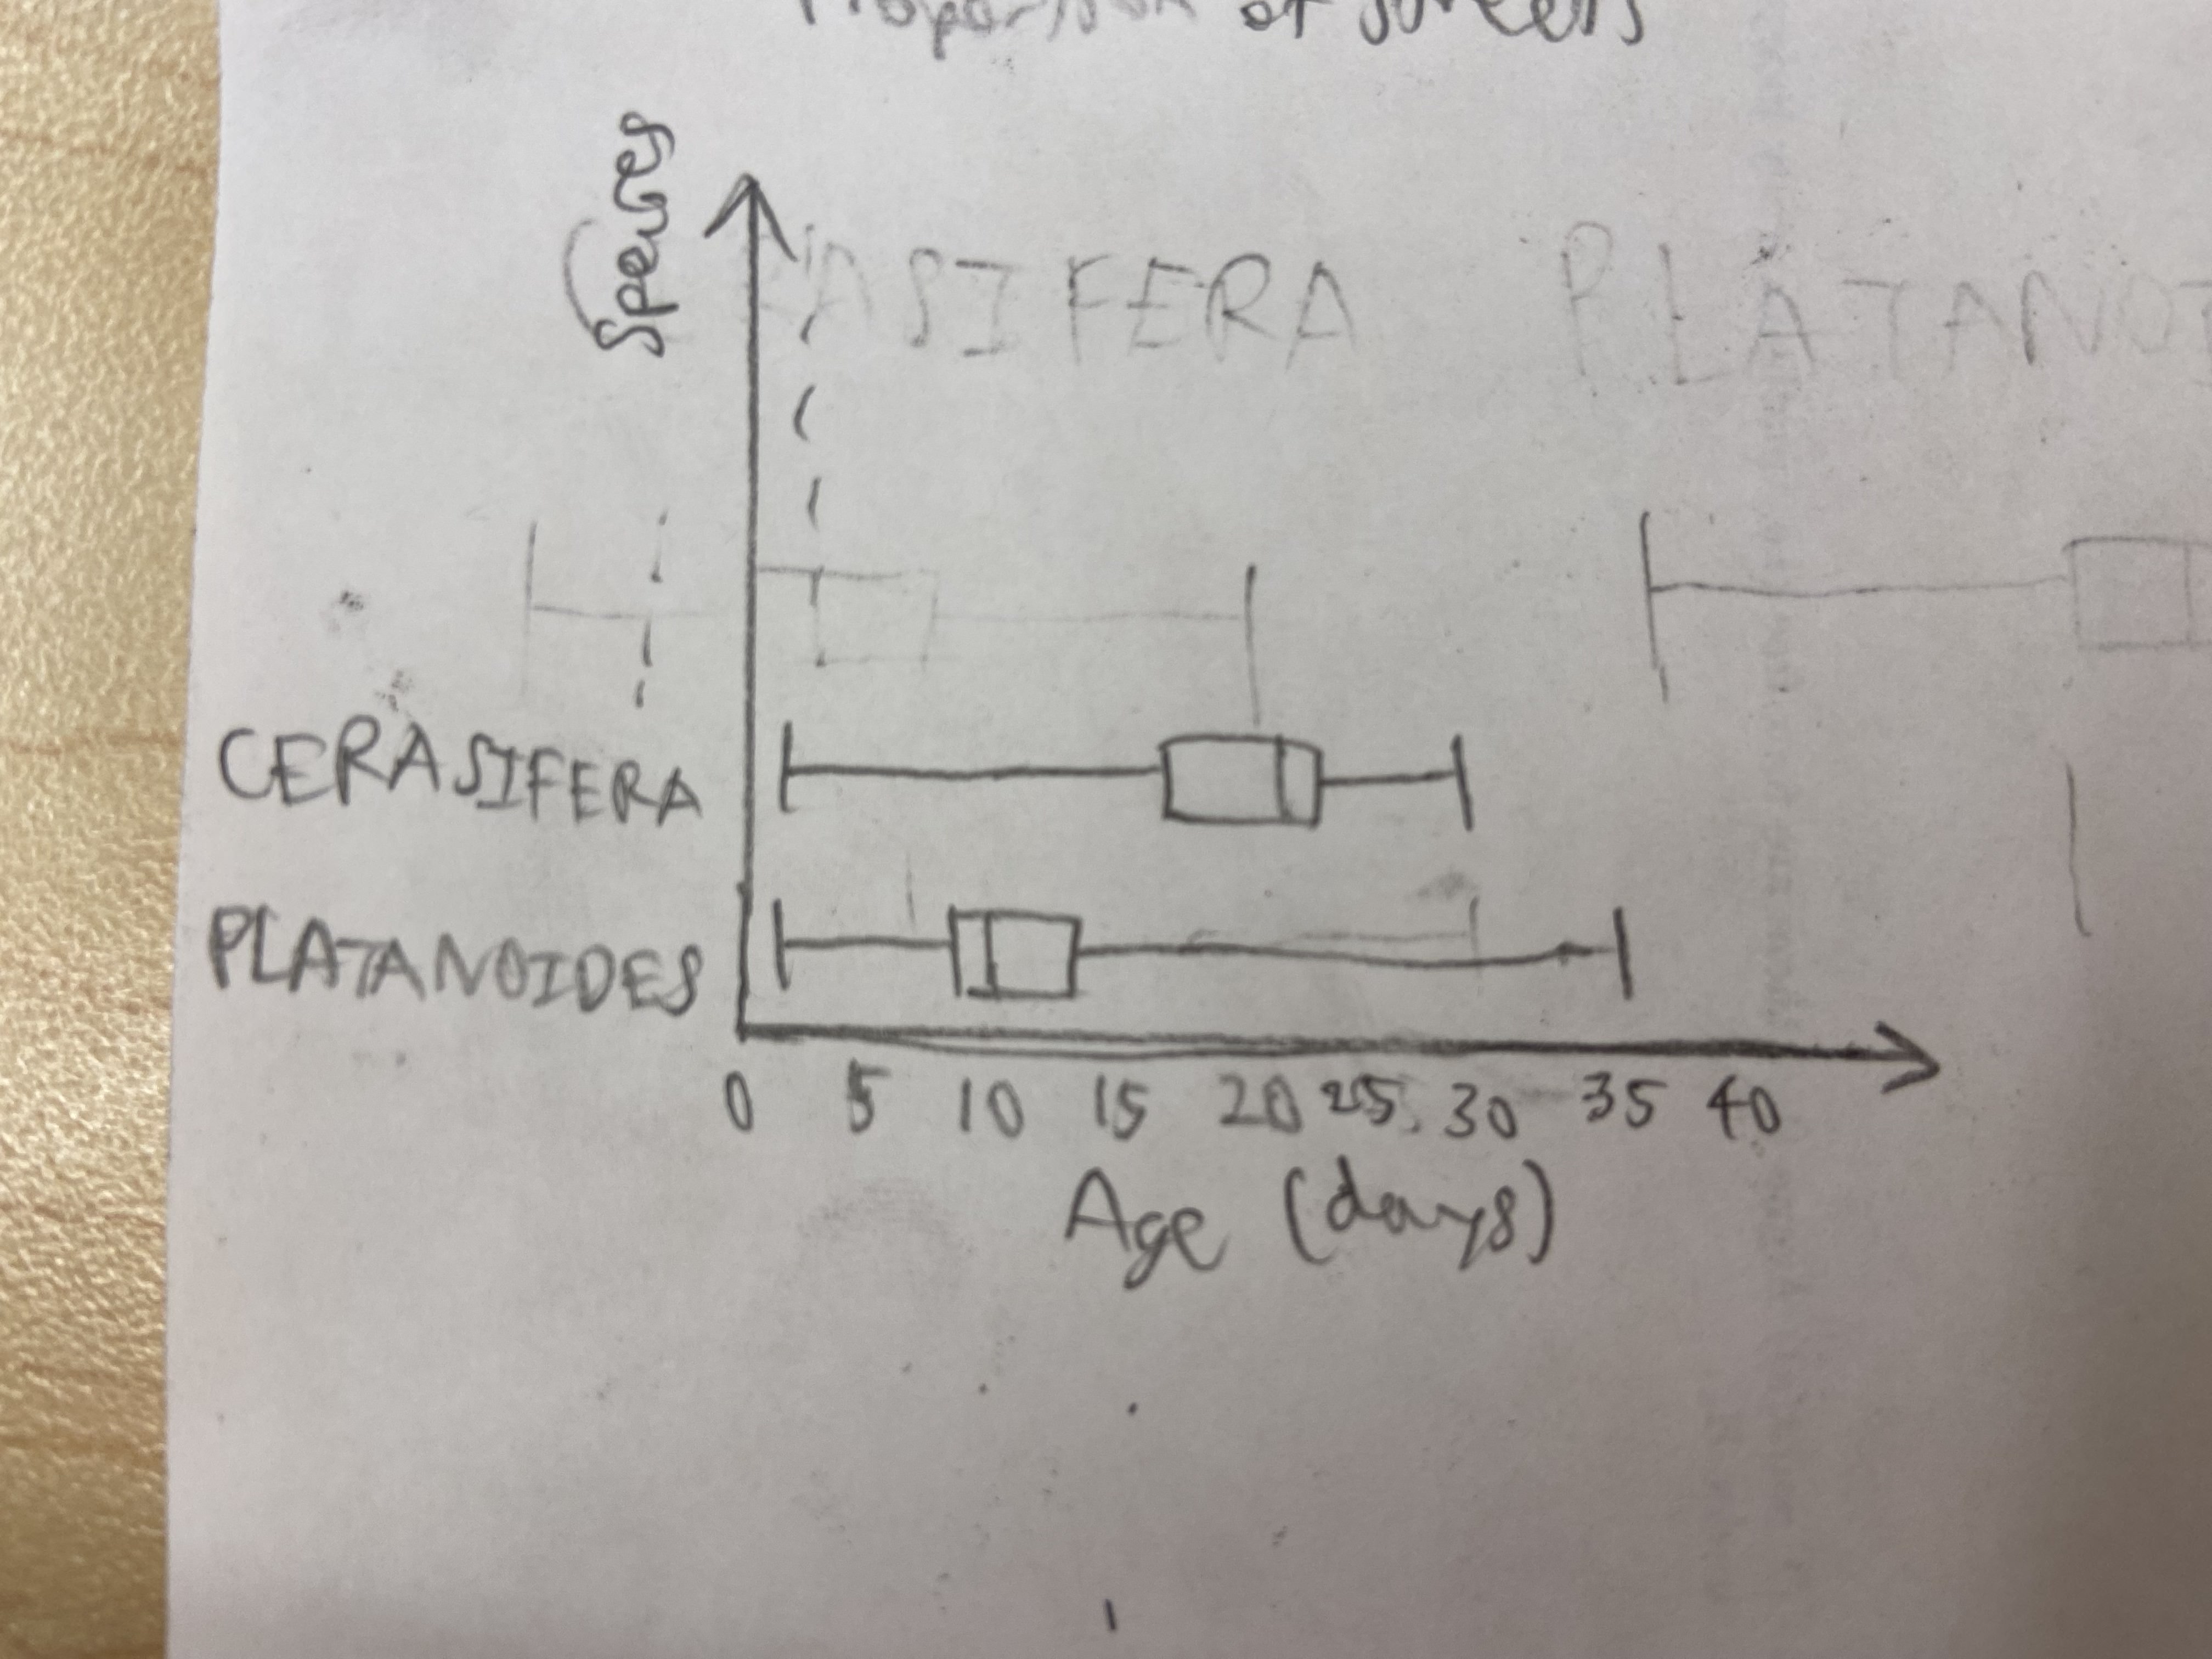 of
Species
ASIFERA PLATANOI
CERASIFERA
PLATANOIDES
0 5 10 15 20 25 30 35 40
Age (days)